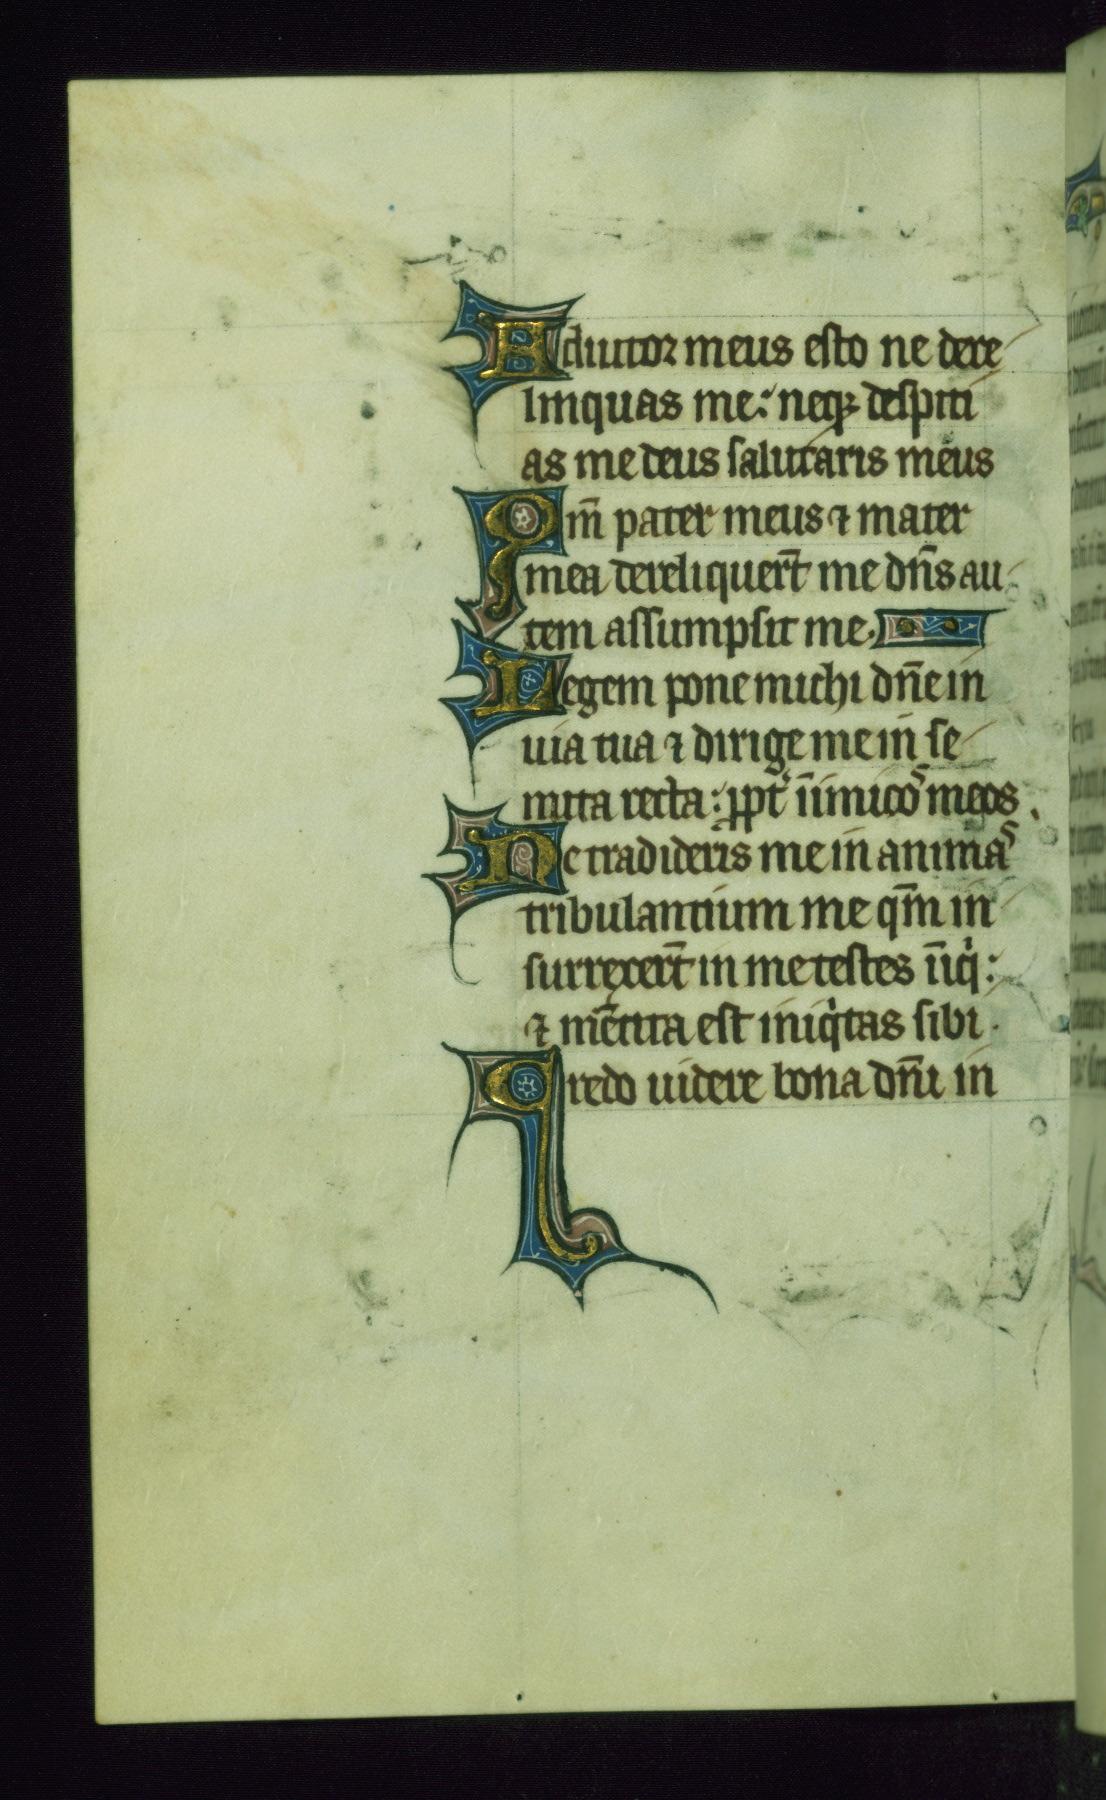 Adiutor meus esto ne dere
linquas me: neqꝫ despiti
as me deus salutaris meus
Qm̄ pater meus ⁊ mater
mea dereliquert̄ me dn̄s au
tem assumpsit me.
Legem pone michi dn̄e in
uia tua ⁊ dirige me in se
mita recta: ꝓpt̾ iīmicos meos
Ne tradideris me in animas
tribulantium me qm̄ in
surrexert̄ in me testes iīqͥ:
⁊ mētita est iniqͥtas sibi.
Credo uidere bona dn̄i in